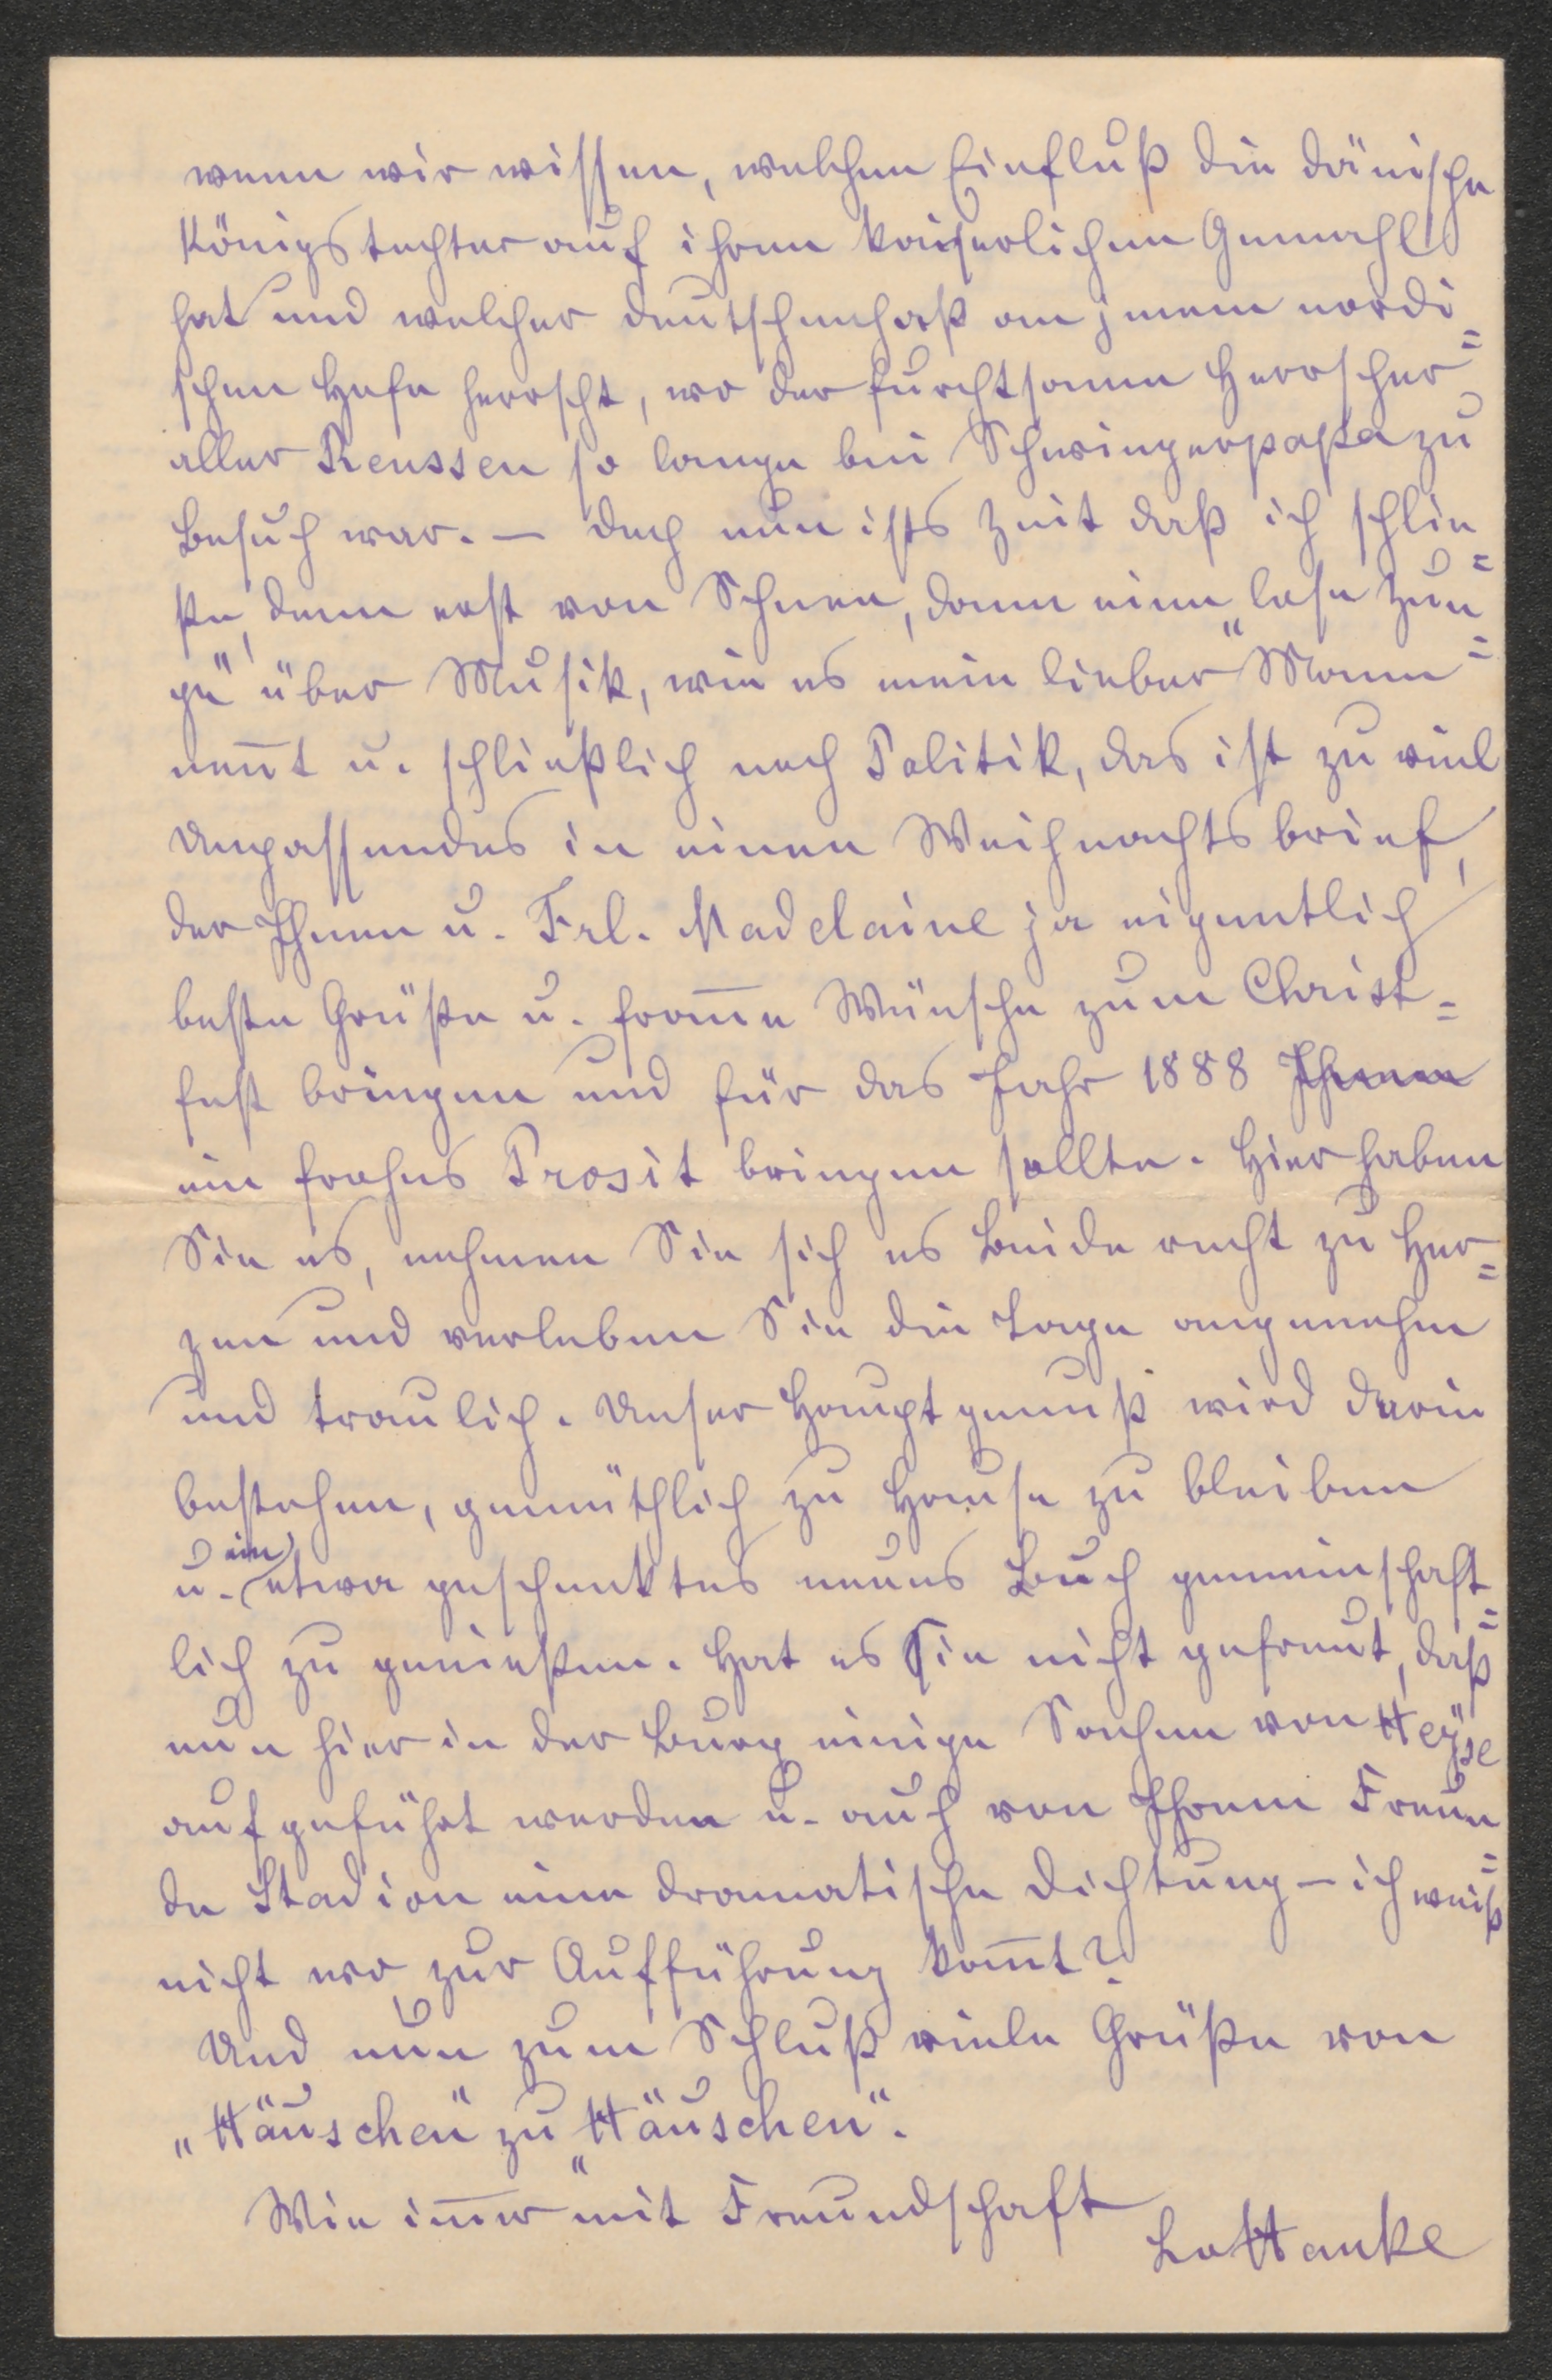 wenn wir wissen, welchen Einfluß die dänische
Königstochter auf ihren kaiserlichen Gemahl
hat und welcher Deutschenhaß an jenem nordi=
schen Hofe herrscht, wo der furchtsame Herrscher
aller Reussen so lange bei Schwiegerpapa zu
Besuch war. — Doch nun ists Zeit daß ich schlie=
ße, denn erst von Schnee, dann eine „lose Zun=
ge" über Musik, wie es mein lieber Mann
nen̄t u. schließlich noch Politik, das ist zu viel
Unpassendes in einen Weihnachtsbrief,
der Ihnen u. Frl. Madelaine ja eigentlich
beste Grüße u. from̄e Wünsche zum Christ=
fest bringen und für das Jahr 1888 Ihnen
ein frohes Prosit bringen sollte. Hier haben
Sie es, nehmen Sie sich es Beide recht zu Her=
zen und verleben Sie die Tage angenehm
und traulich. Unser Hauptgenuß wird darin
bestehen, gemüthlich zu Hause zu bleiben
u. ein etwa geschenktes neues Buch gemeinschaft=
lich zu genießen. Hat es Sie nicht gefreut, daß
nun hier in der Burg einige Sachen von Heÿse
aufgeführt werden u. auch von Ihrem Freun=
de Stadion eine dramatische Dichtung – ich weiß
nicht wo, zur Aufführung kom̄t?
Und nun zum Schluß viele Grüße von
„Häuschen" zu „Häuschen".
Wie im̄er mit Freundschaft
LaHanke